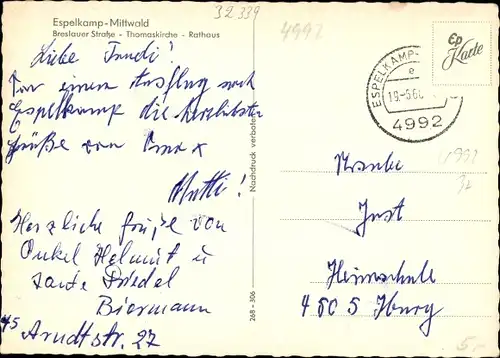 32339
4992
Espelkamp-Mittwald
Breslauer Straße - Thomaskirche - Rathaus
Liebe Trudi!
Von einem Ausflug nach
Espelkamp die herzlichsten
Grüße von
Mutti!
Herzliche Grüße von
Onkel Helmut u
Tante Friedel
Biermann
45
Arndtstr. 27
Nachdruck verboten
268 - 306
ESPELKAMP-
e
19.-5.66
4992
Karte
Just
Heimschule
4505 Iburg
5,-